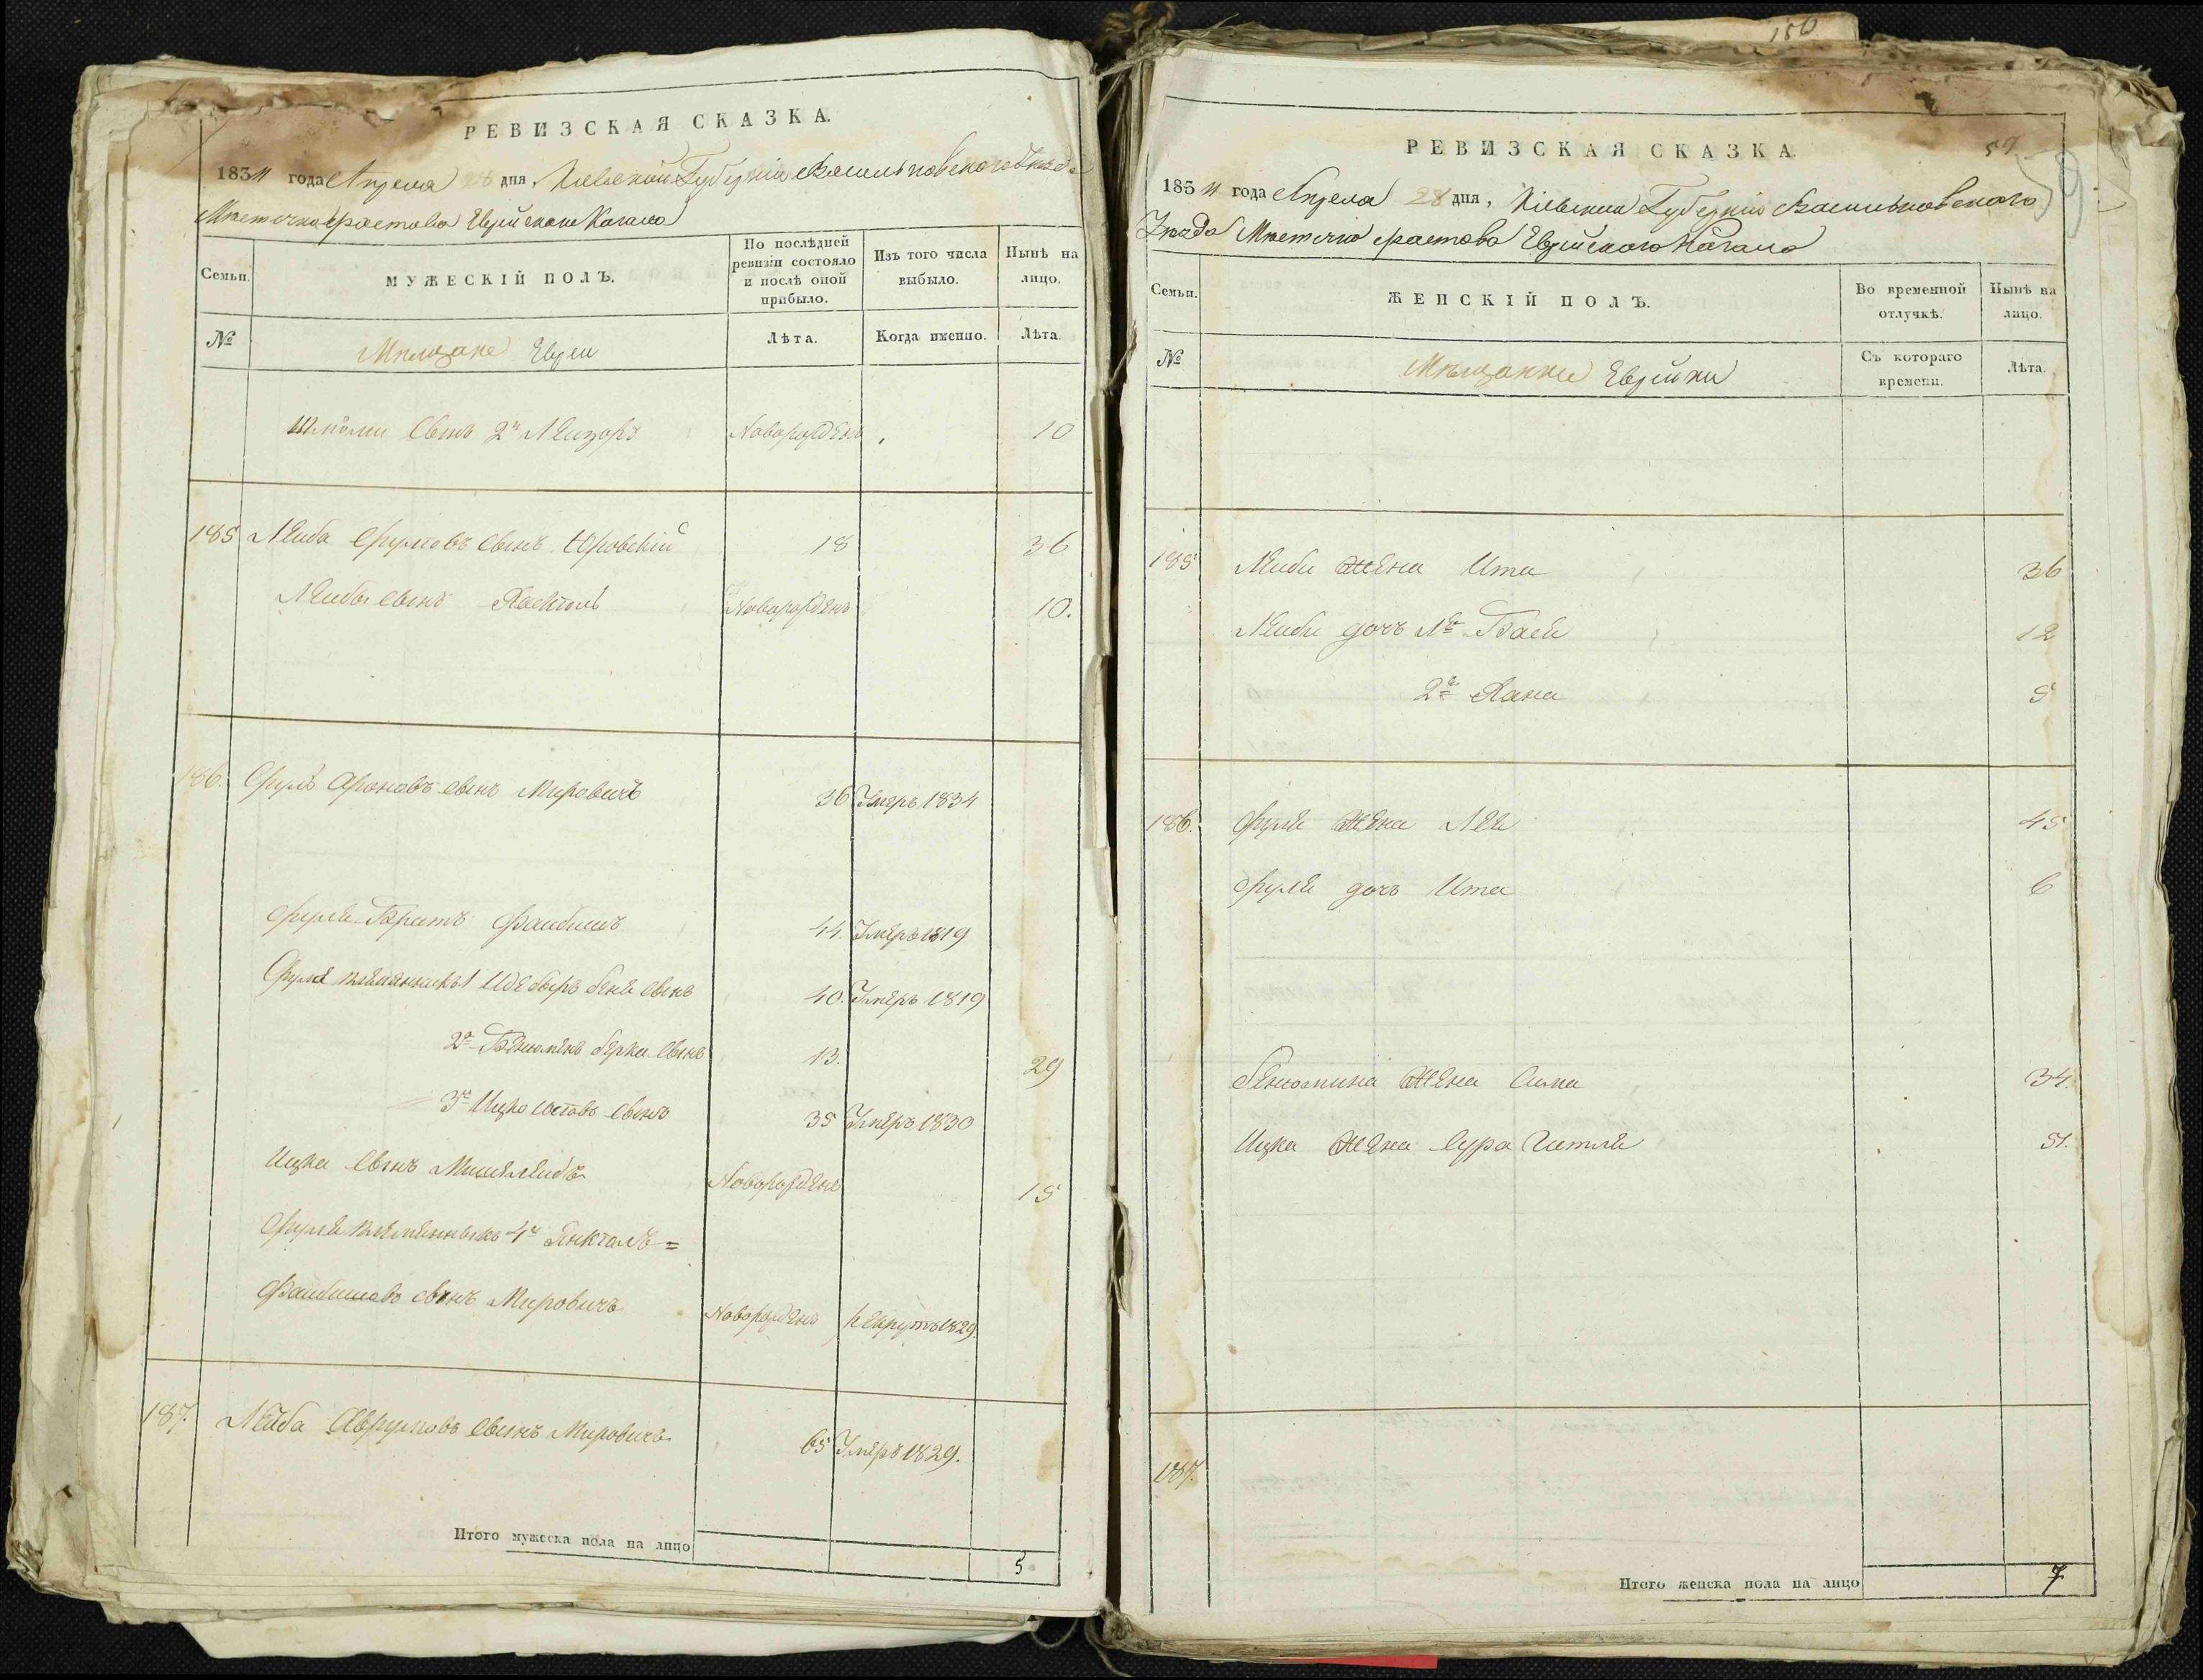 РЕВИЗСКАЯ СКАЗКА.
1834 года Апреля 28 дня, Киевской Губерніи Васильковского Уезда
Местечка Фастова Еврейского Кагала
Семьи.
МУЖЕСКІЙ ПОЛЪ.
По послѣдней ревизіи состояло и послѣ оной прибыло.
Изъ того числа выбыло.
Нынѣ на лицо.
№
Мещане Евреи
Лѣта.
Когда именно.
Лѣта.
Шлиомы Сынъ 2й Лейзоръ Новорожденъ 10
185 Лейба Сруловъ Сынъ Юровскій 18 36
Лейбы сынъ Новорожденъ 10.
186. Сруль Ароновъ сынъ Мировичъ 36 Умеръ 1834
Сруля Братъ Файбишъ 44. Умеръ 1819
Сруля племянникъ 1 сынъ 40. Умеръ 1819
2й Бенюминъ Берка Сынъ 13. 29
3й Ицко сынъ 35 Умеръ 1830
Ицка Сынъ Мошелейба Новорожденъ 15
Сруля племянникъ 4й
Файбишовъ сынъ Мировичъ Новорожденъ рекрутъ 1829.
187. Лейба Аврумовъ Сынъ Мировичъ 65 Умеръ 1829.
Итого мужеска пола на лицо 5
186
РЕВИЗСКАЯ СКАЗКА.
59
1834 года Апреля 28 дня, Кіевской Губерніи Васильковского
Уезда Местечка Фастова Еврейского Кагала
Семьи.
ЖЕНСКІЙ ПОЛЪ.
Во временной отлучкѣ.
Нынѣ на лицо.
№
Мещанки Еврейки
Съ котораго времени.
Лѣта.
185 Лейбы Жена Ита 36
Лейбы дочь 1я Бася 12
2я Хана 5
186. Сруля Жена Лея 45
Сруля дочь Ита 6
Бенюмина Жена Сима 34.
Ицка Жена Сура Гитля 51.
187.
Итого женска пола на лицо 7